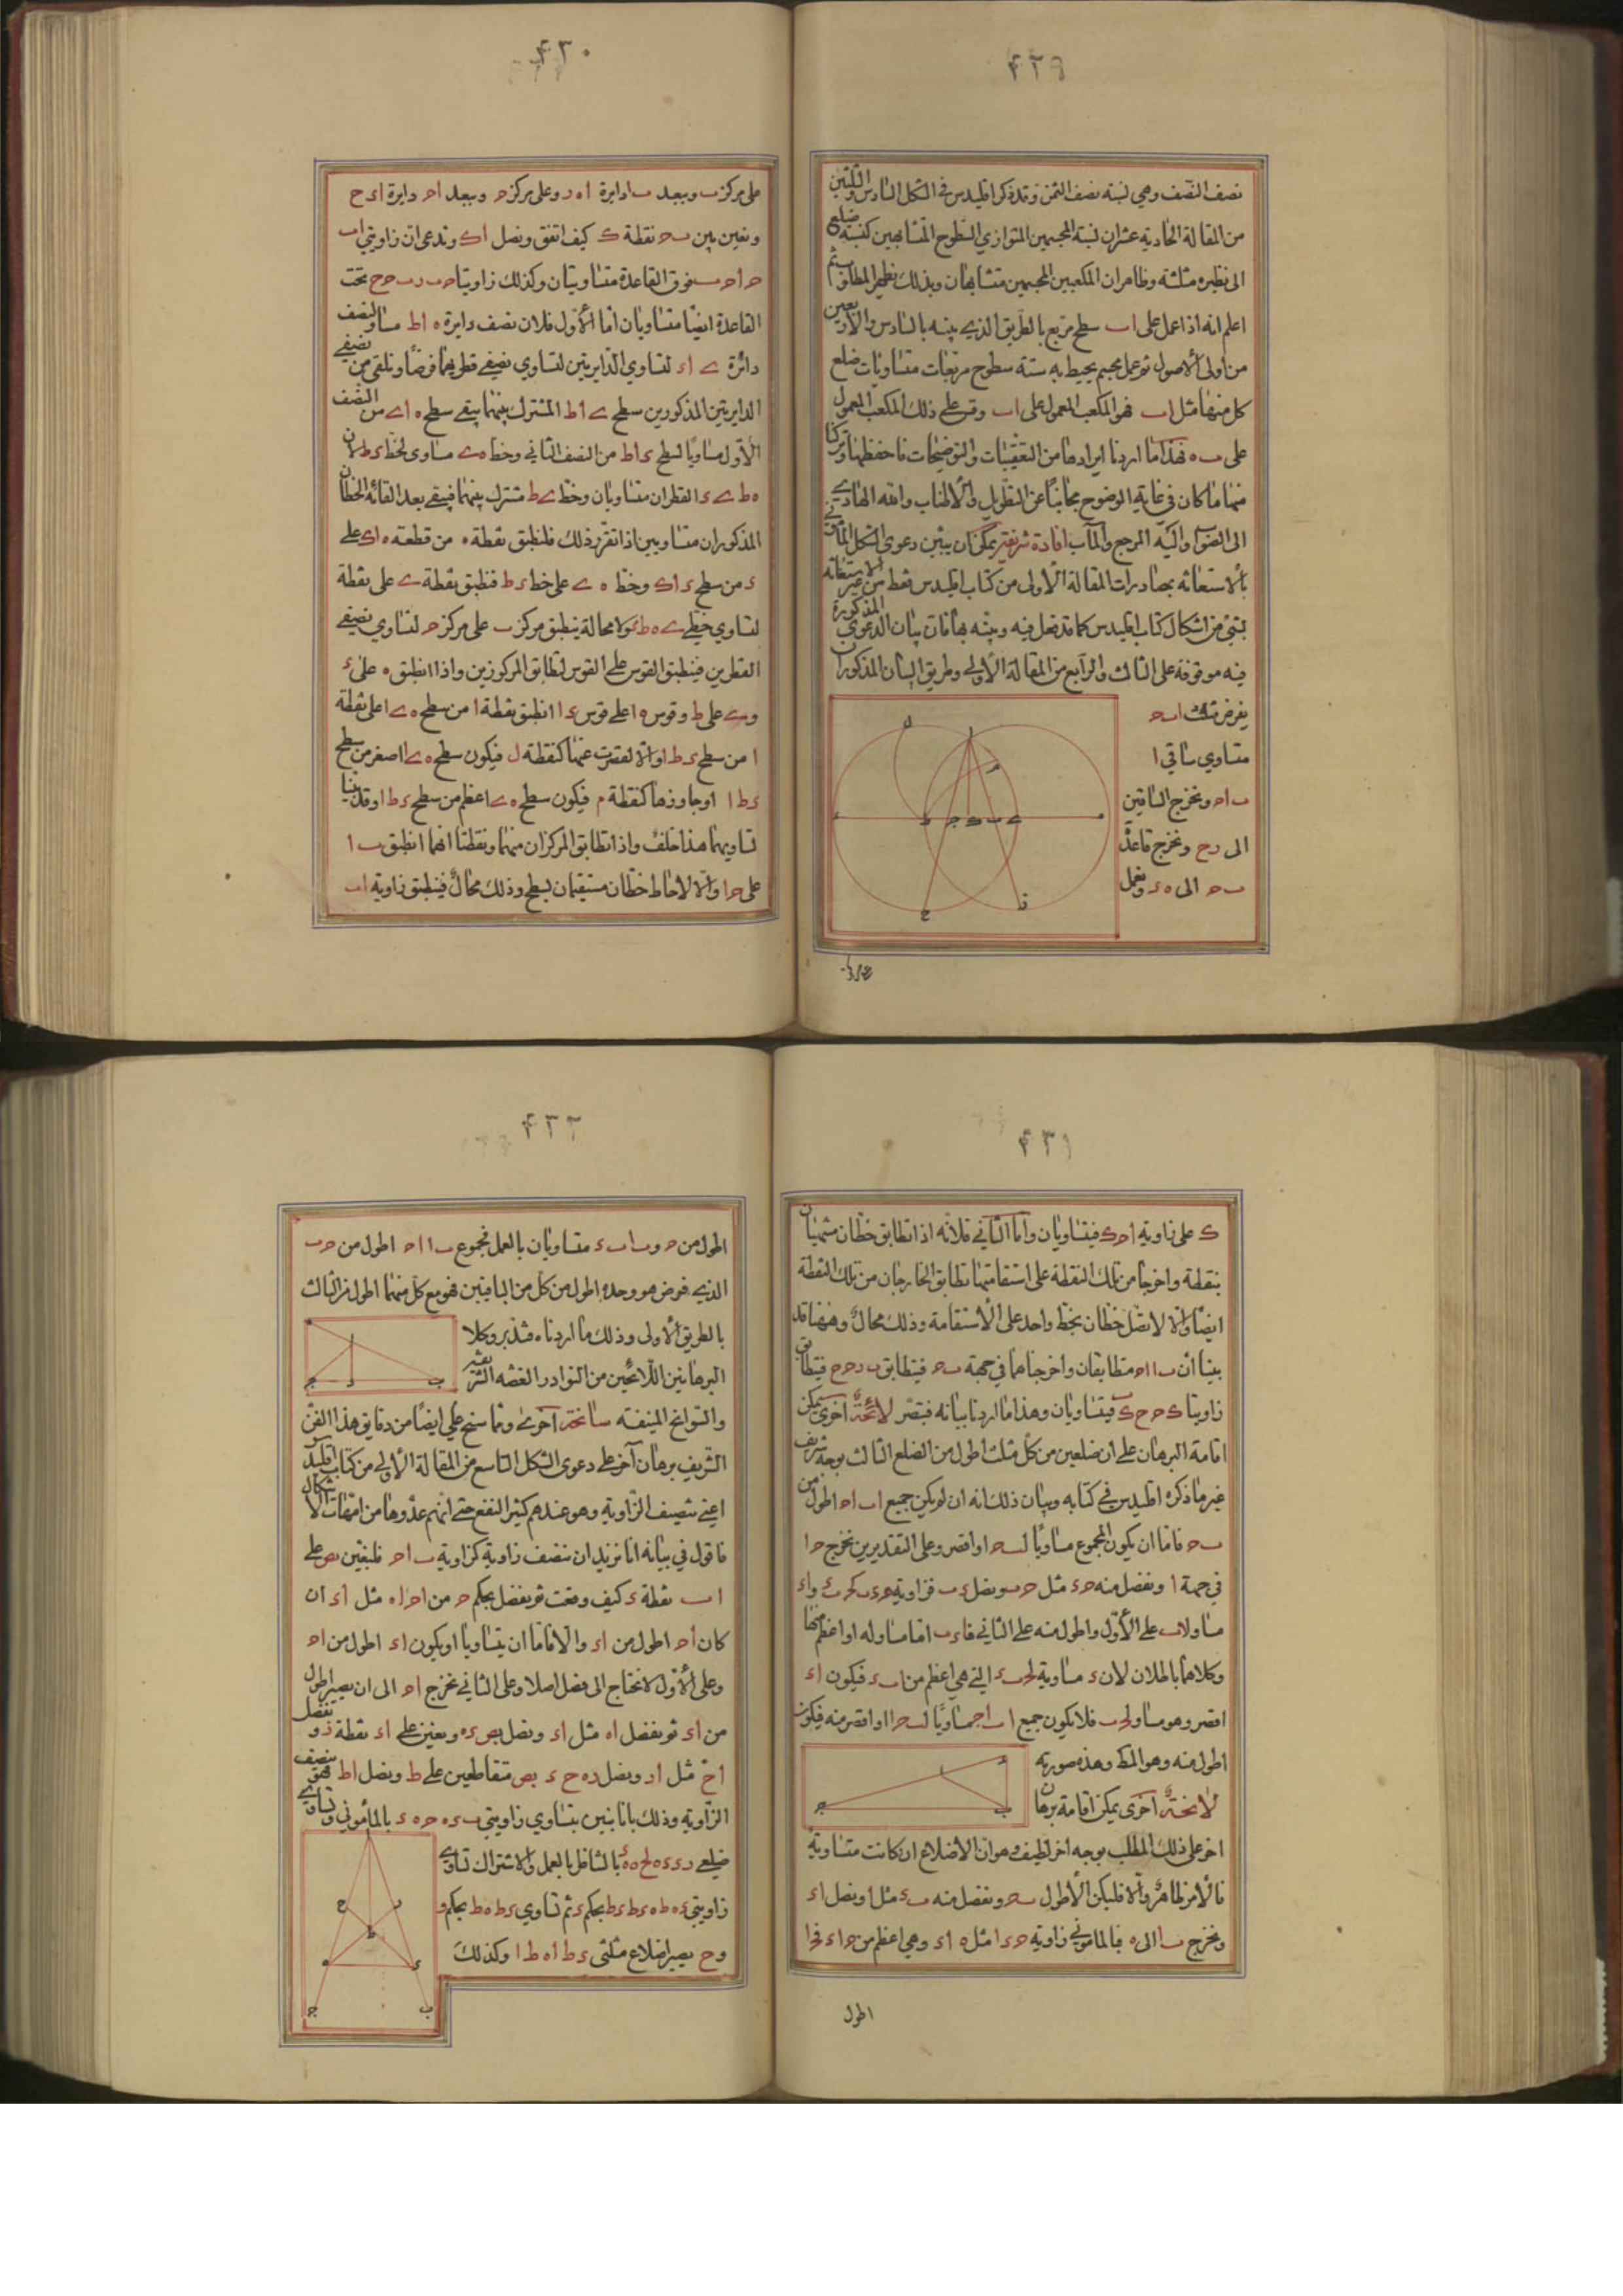 ٤٢٩
نصف النصف وهي نسبة نصف الثمن وقد ذكر اقليدس في الشكل السادس والثلثين
من المقالة الحادية عشر ان نسبة المجسمين المتوازي السطوح المتشابهين كنسبة ضلع
الى نظيره مثلثة وظاهر ان المكعبين المجسمين متشابهان وبذلك نظهر المطلوب ثم
اعلم انه اذا عمل على اب سطح مربع بالطريق الذي بينه بالسادس والاربعين
من اولى الاصول ثم عمل مجسم يحيط به ستة سطوح مربعات متساويات ضلع
كل منها مثل اب فهو المكعب المعمول على اب وقس على ذلك المكعب المعمول
على ب ه فهذا ما اردنا ايرادها من التعقيبات والتوضيحات فاحفظها وتركنا
منها ما كان في غاية الوضوح مجانبا عن التطويل والاطناب والله الهادي
الى الصواب واليه المرجع والمآب افادة شريفة يمكن ان يبين دعوى الشكل المأموني
بالاستعانة بمصادرات المقالة الاولى من كتاب اقليدس فقط من غير الاستعانة
بشئ من اشكال كتاب اقليدس كما قد فعل فيه وبينه بها فان بيان الدعوى المذكورة
فيه موقوفة على الثالث والرابع من المقالة الاولى وطريق البيان المذكور ان
يفرض مثلث ا ب ح
متساوي ساقي ا
ب ا ح ونخرج الساقين
الى ر ح ونخرج قاعدة
ب ح الى ه ء ونعمل
٤٣٠
على مركز ب وببعد ب ا دايرة ا ه ر وعلى مركز ح وببعد ا ح دايرة ا ء ح
ونعين بين ب ح نقطة ك كيف اتفق ونصل ا ك وندعى ان زاويتي ا ب
ح ا ح ب فوق القاعدة متساويتان وكذلك زاويتا ح ب ر ب ح ح تحت
القاعدة ايضا متساويان اما الاول فلان نصف دايرة ه ا ط مساو لنصف
دائرة ى ا ء لتساوي الدايرتين لتساوي نصفي قطريهما فرضا ونلقى من نصفي
الدايرتين المذكورين سطح ى ا ط المشترك بينهما يبقى سطح ه ا ى من النصف
الاول مساويا لسطح ء ا ط من النصف الثاني وخط ه ى مساوى لخط ء ط لان
ه ط ى ء القطران متساويان وخط ى ط مشترك بينهما فيبقى بعد القائه الخطان
المذكوران متساويين اذا تقرر ذلك فلنطبق نقطة ه من قطعة ه ا ى على
ء من سطح ء ا ك وخط ه ى على خط ء ط فنطبق نقطة ى على نقطة
لتساوي خطي ى ه ط ء ولا محالة ينطبق مركز ب على مركز ح لتساوي نصفي
القطرين فينطبق القوس على القوس لتطابق المركوزين واذا انطبق ه على ء
و ى على ط وقوس ه ا على قوس ء ا انطبق نقطة ا من سطح ه ى ا على نقطة
ا من سطح ء ط ا والا لقصرت عنها كنقطة ل فيكون سطح ه ى ا اصغر من سطح
ء ط ا او جاوزها كنقطة م فيكون سطح ه ى ا اعظم من سطح ء ط ا وقد بينا
تساويهما هذا خلف واذا تطابق المركزان منهما ونقطتا ا فهما انطبق ب ا
على ح ا والا لاحاط خطان مستقيمان بسطح وذلك محال فينطبق زاوية ا ب
٤٣١
ك على زاوية ا ح ك فيتساويان واما الثاني فلانه اذا تطابق خطان منتهيان
بنقطة واخرجا من تلك النقطة على استقامتهما تطابق الخارجان من تلك النقطة
ايضا والا لاتصل خطان بخط واحد على الاستقامة وذلك محال وههنا قد
بينا ان ب ا ا ح متطابقان واخرجناهما في جهة ب ح فيتطابق ب ر ح ح فيتطابق
زاويتا ك ح ح ك ب ر فيتساويان وهذا ما اردنا بيانه فتبصر لائحة اخرى يمكن
اقامة البرهان على ان ضلعين من كل مثلث اطول من الضلع الثالث بوجه شريف
غير ما ذكره اقليدس في كتابه وبيان ذلك انه ان لم يكن جميع ا ب ا ح اطول من
ب ح فاما ان يكون المجموع مساويا ل ب ح او اقصر وعلى التقديرين نخرج ح ا
في جهة ا ونفصل منه ح ء مثل ح ب ونصل ء ب فزاوية
مساو ل ا ب على الاول واطول منه على الثاني فا ء ب اما مساو له او اعظم منها
وكلاهما باطلان لان ء مساوية ل ح ب ء التي هي اعظم من ا ب ء فيكون ا ء
اقصر وهو مساو فلا يكون جميع ا ب ا ح مساويا ل ب ح او اقصر منه فيكون
اطول منه وهو المط وهذه صورته
لائحة اخرى يمكن اقامة برهان
اخر على ذلك المطلب بوجه اخر لطيف وهو ان الاضلاع ان كانت متساوية
فالامر ظاهر والا فليكن الاطول ب ح ونفصل منه ب ء مثل ا ونصل ا ء
ونخرج ب ا الى ه فبالمأموني زاوية ح ء ا مثل ه ا ء وهي اعظم من ح ا ء
اطول
٤٣٢
اطول من ح و ب ا ب ء متساويان بالعمل فمجموع ب ا ا ح اطول من ح ب
الذي فرض هو وحده اطول من كل من الباقيين فهو مع كل منهما اطول من الثالث
بالطريق الاولى وذلك ما اردناه فتدبر وكلا
البرهانين اللائحين من النوادر الغضه الشريفة
والسوانح المنيفة سانحة اخرى ومما سنح على ايضا من دقايق هذا الفن
الشريف برهان آخر على دعوى الشكل التاسع من المقالة الاولى من كتاب اقليدس
اعنى تنصيف الزاوية وهو عندهم كثير النفع حتى انهم عدوها من امهات الاشكال
فاقول في بيانه انا نريد ان ننصف زاوية كزاوية ب ا ح فلنعين على
ا ب نقطة ء كيف وقعت ثم نفصل بحكم ح من ا ح ا ه مثل ا ء ان
كان ا ح اطول من ا ء والا فاما ان يتساويا او يكون ا ء اطول من ا ح
وعلى الاول لا نحتاج الى فصل اصلا وعلى الثاني نخرج ا ح الى ان يصير اطول
من ا ء ثم نفصل ا ه مثل ا ء ونصل ء ه ونعين على ا ء نقطة ر ونفصل
ا ح مثل ا ر ونصل ر ه ح ء متقاطعين على ط ونصل ا ط فهو ينصف
الزاوية وذلك بانا نبين بتساوي زاويتي ب ء ه ح ه ء بالمأموني وتساوي
ضلعي بالتناظر بالعمل والاشتراك تساوي
زاويتي بحكم ء ثم تساوي ء ط ه ط بحكم و
و ح يصير اضلاع مثلثي ء ط ا ه ط ا وكذلك